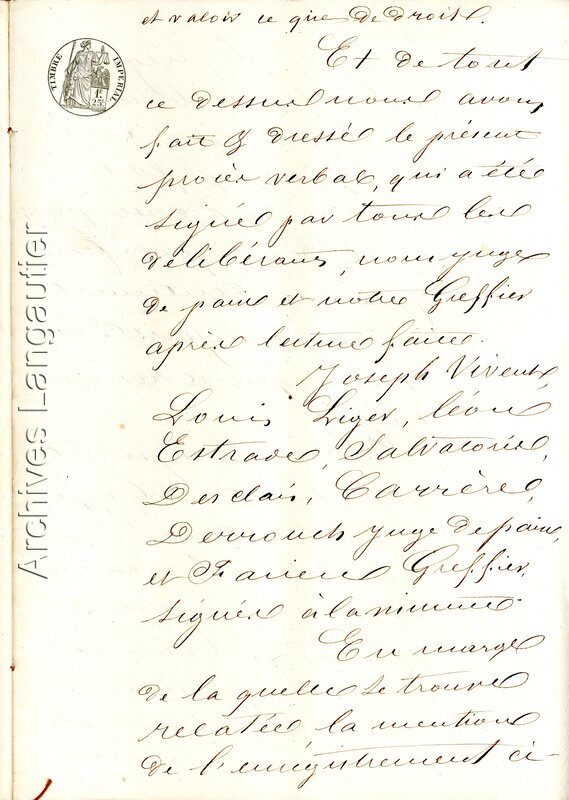 et valoir ce que de droit.
TIMBRE IMPERIAL
1 F.
25 C.
Et de tout
ce dessus nous avons
fait & dressé le présent
procès verbal, qui a été
signé par tous les
délibérans, nous juge
de paix et notre Greffier
après lecture faite.
Joseph Vivent,
Louis Liger, léon
Estrade, Salvatoris,
Desclais, Carrère,
Derrouch juge de paix,
et Greffier,
signés à la minute
En marge
de la quelle se trouve
relatée la mention
de l'enrégistrement ci
Archives Langautier